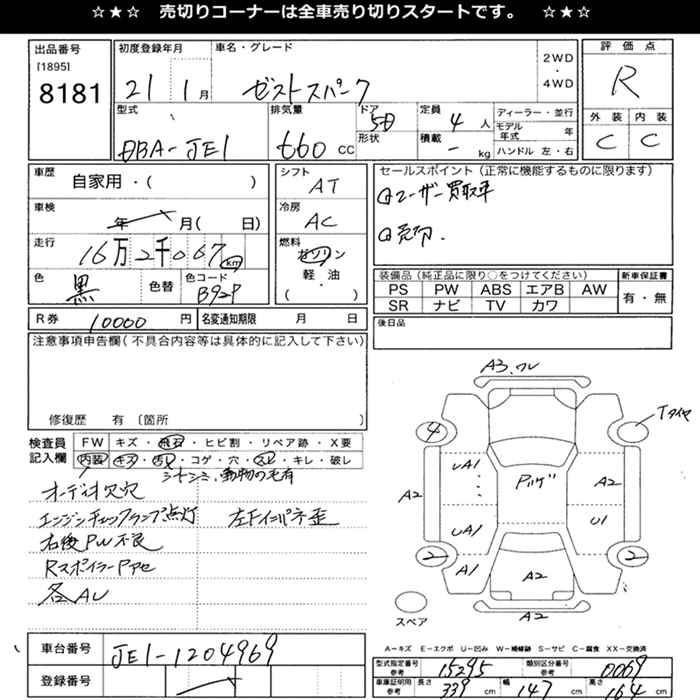 ☆★☆ 売切りコーナーは全車売り切りスタートです。 ☆★☆
出品番号
[1895]
8181
初度登録年月
21 1月
車名・グレード
ゼストスパーク
2WD
・
4WD
評価点
R
型式
DBA-JE1
排気量
660 CC
ドア
5D
形状
定員
4人
積載
- kg
ディーラー・並行
モデル年式 年
ハンドル 左・右
外装 内装
C C
車歴
自家用・( )
車検
年 月( 日)
走行
16万2千067km
色
黒
色替
色コード
B92P
シフト
AT
冷房
AC
燃料
ガソリン
軽・油
・
( )
セールスポイント(正常に機能するものに限ります)
ユーザー買取車
売切.
装備品(純正品に限り○をつけてください)
PS PW ABS エアB AW
SR ナビ TV カワ
新車保証書
有・無
R券 10000 円
名変通知期限 月 日
後日品
注意事項申告欄(不具合内容等は具体的に記入して下さい)
修復歴 有 〔箇所 〕
検査員
記入欄
FW キズ・飛石・ヒビ割・リペア跡・X要
内装 キズ・汚レ・コゲ・穴・スレ・キレ・破レ
シート シミ、動物の毛有
オーディオ欠穴
エンジンチェックランプ点灯
左Fインパネ歪
右後PW不良
RスポイラーPアセ
各AU
A3.ワレ
4
Tタイヤ
UA1
Pハゲ
A2
A2
UA1
U1
2
2
A1
A2
A2
スペア
車台番号
JE1-1204969
登録番号
A−キズ E−エクボ U−凹み W−補修跡 S−サビ C−腐食 XX−交換済
型式指定番号
参考
15295
類別区分番号
参考
0069
車庫証明用
参考
長さ 339 cm
幅 147 cm
高さ 164 cm